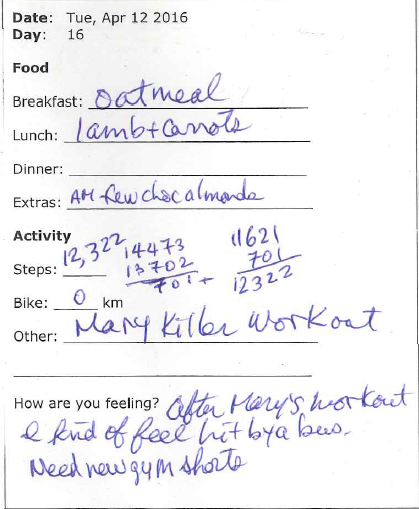 Date: Tue, Apr 12 2016
Day: 16
Food
Breakfast: oatmeal
Lunch: lamb + carrots
Dinner:
Extras: AM few choc almonds
Activity
Steps: 12,322
14473
13702
701 +
11621
701
12322
Bike: 0 km
Other: Mary Killer Workout
How are you feeling? After Mary's workout
I kind of feel hit by a bus.
Need new gym shorts